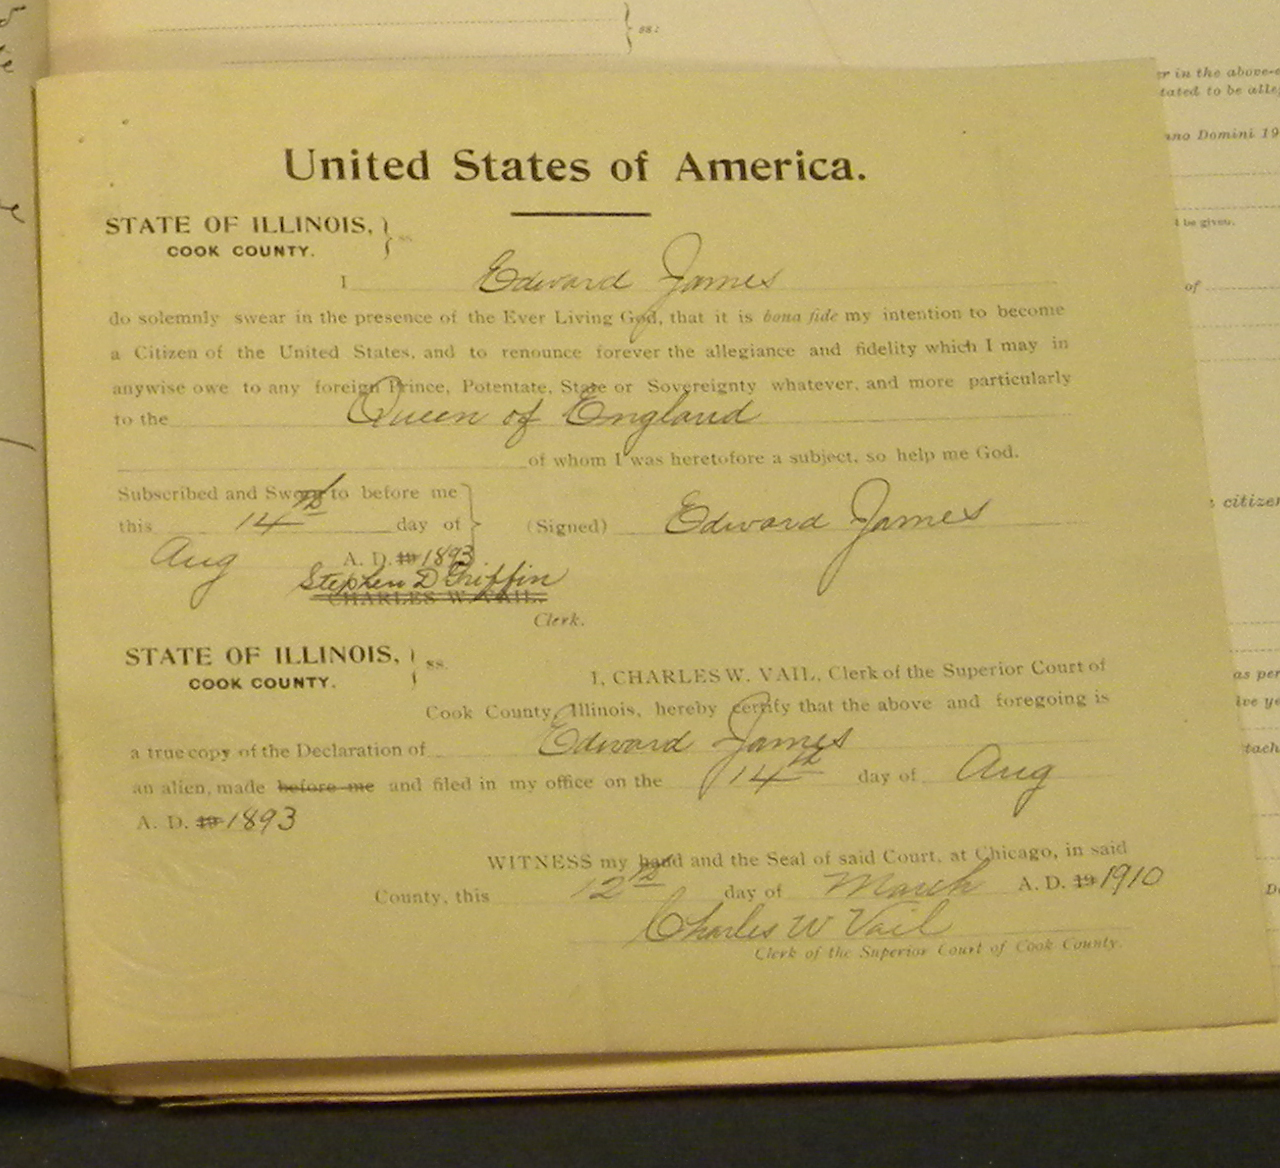 ss:
United States of America.
STATE OF ILLINOIS, } ss
COOK COUNTY.
I Edward James
do solemnly swear in the presence of the Ever Living God, that it is bona fide my intention to become
a Citizen of the United States, and to renounce forever the allegiance and fidelity which I may in
anywise owe to any foreign Prince, Potentate, State or Sovereignty whatever, and more particularly
to the Queen of England
of whom I was heretofore a subject, so help me God.
Subscribed and Sworn to before me
this 14th day of
Aug A. D. 19 1893
(Signed) Edward James
Stephen D Griffin
CHARLES W. VAIL.
Clerk.
STATE OF ILLINOIS, } ss.
COOK COUNTY.
I, CHARLES W. VAIL, Clerk of the Superior Court of
Cook County, Illinois, hereby certify that the above and foregoing is
a true copy of the Declaration of Edward James
an alien, made before me and filed in my office on the 14th day of Aug
A. D. 19 1893
WITNESS my hand and the Seal of said Court, at Chicago, in said
County, this 12th day of March A. D. 19 1910
Charles W Vail
Clerk of the Superior Court of Cook County.
er in the above-
tated to be alle
nno Domini 19
l be given.
of
citizen
as per
ive ye
tach